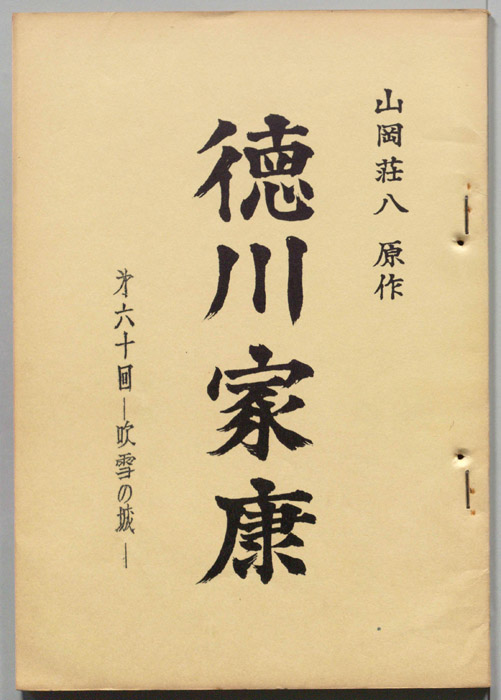 山岡荘八 原作
徳川家康
才六十回ー吹雪の城ー